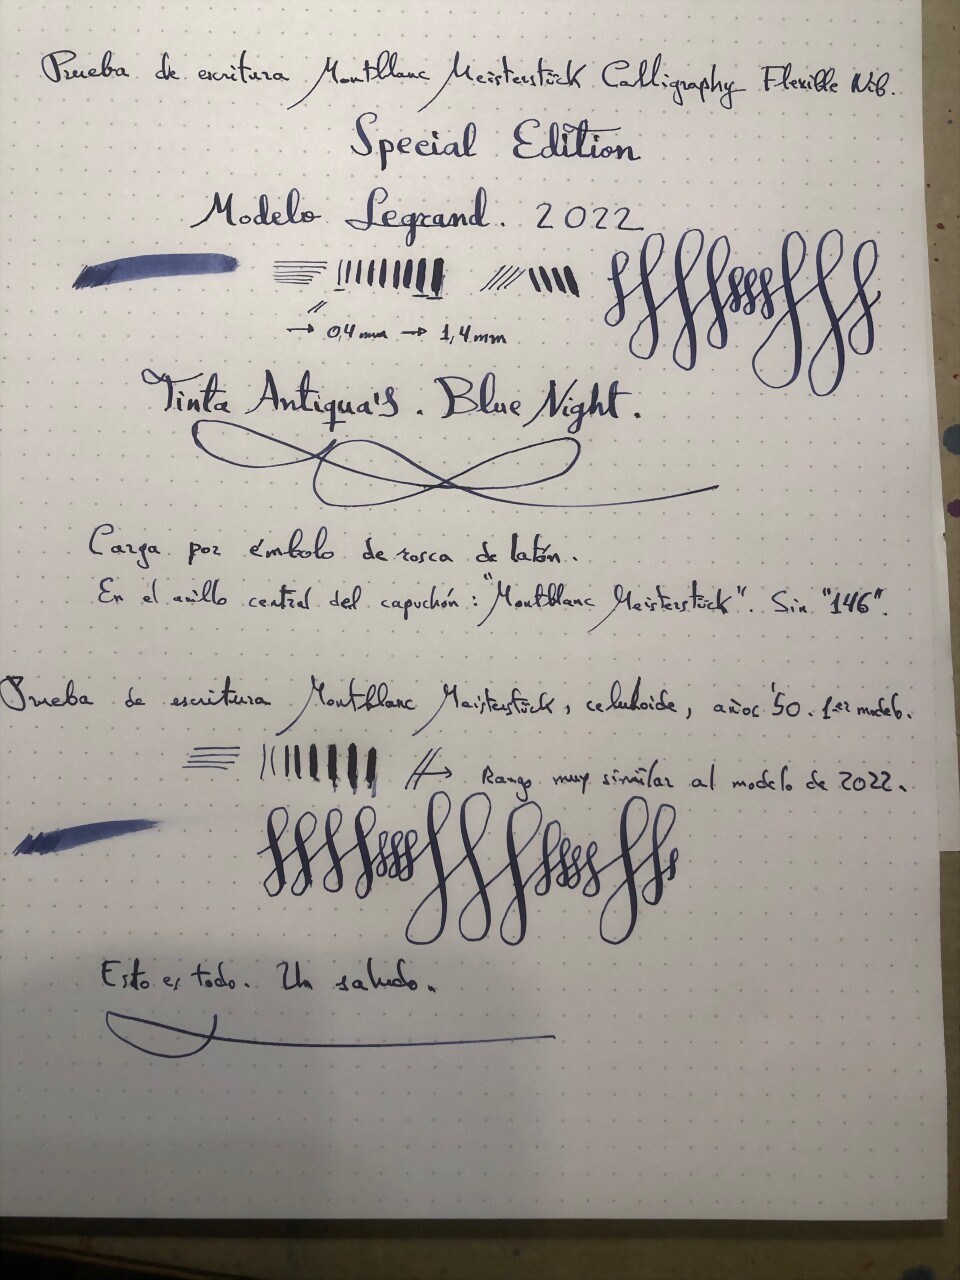 Prueba de escritura Montblanc Meisterstück Calligraphy Flexible Nib.
Special Edition
Modelo Legrand. 2022
→ 0,4 mm → 1,4 mm
Tinta Antiqua's. Blue Night.
Carga por émbolo de rosca de latón.
En el anillo central del capuchón: "Montblanc Meisterstück". Sin "146".
Prueba de escritura Montblanc Meisterstück, celuloide, años '50. 1er modelo.
→ Rango muy similar al modelo de 2022.
Esto es todo. Un saludo.